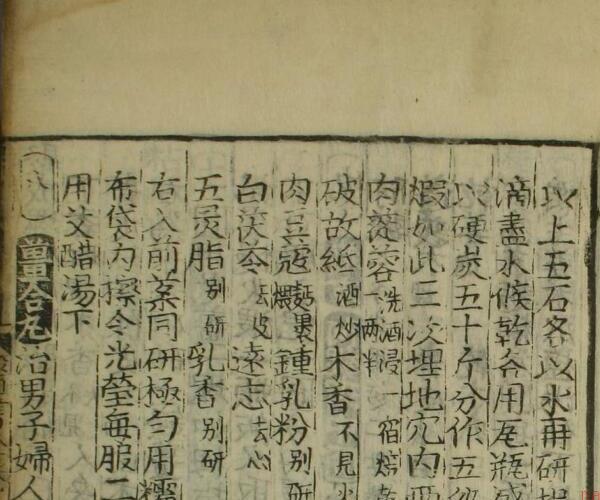 以上五石各以水再研
滴盡水候乾各用瓦瓶盛
以硬炭五十斤分作五
煆如此三次埋地穴内兩
肉蓯蓉一兩半洗酒浸一宿焙乾
破故紙酒炒木香不見火
肉豆蔻麵裹煨鍾乳粉别研
白茯苓去皮遠志去心
五灵脂别研乳香别研
右入前藥同研極勻用糯
布袋内擦令光瑩每服二
用艾醋湯下
八
薑合丸治男子婦人